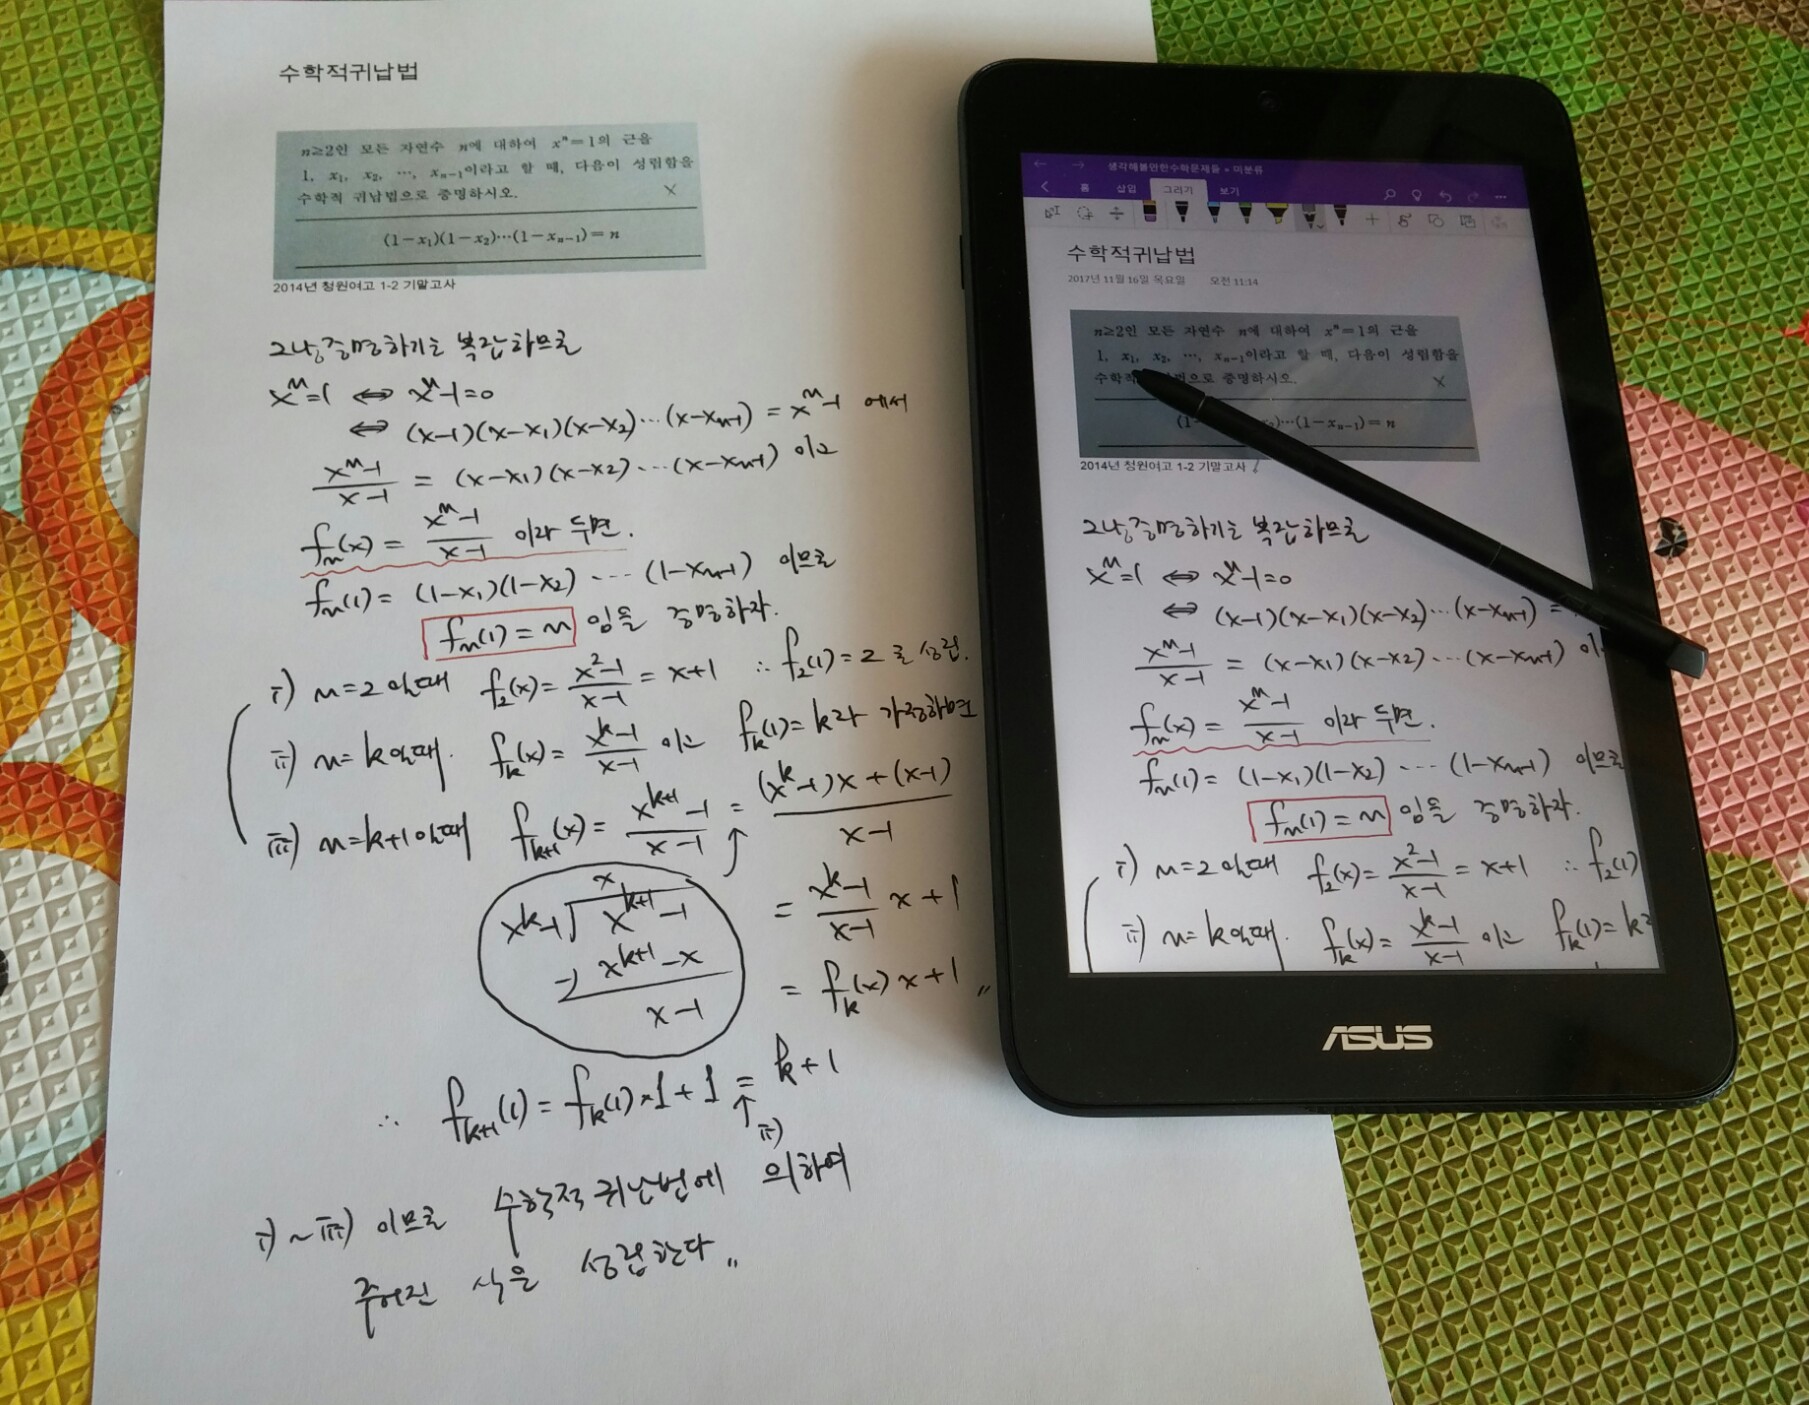 수학적귀납법
n≥2인 모든 자연수 n에 대하여 xⁿ=1의 근을
1, x₁, x₂, ⋯, xₙ₋₁이라고 할 때, 다음이 성립함을
수학적 귀납법으로 증명하시오. ×
(1-x₁)(1-x₂)⋯(1-xₙ₋₁)=n
2014년 청원여고 1-2 기말고사
그냥증명하기는 복잡하므로
xⁿ=1 ⇔ xⁿ-1=0
⇔ (x-1)(x-x₁)(x-x₂)⋯(x-xₙ₋₁) = xⁿ-1 에서
(xⁿ-1)/(x-1) = (x-x₁)(x-x₂)⋯(x-xₙ₋₁) 이고
fₙ(x) = (xⁿ-1)/(x-1) 이라 두면.
fₙ(1) = (1-x₁)(1-x₂) ⋯ (1-xₙ₋₁) 이므로
fₙ(1) = n 임을 증명하자.
i) n=2 일때 f₂(x) = (x²-1)/(x-1) = x+1 ∴ f₂(1) = 2 로 성립.
ii) n=k일때. fₖ(x) = (xᵏ-1)/(x-1) 이고 fₖ(1)=k라 가정하면
iii) n=k+1일때 fₖ₊₁(x) = (xᵏ⁺¹-1)/(x-1) = ((xᵏ-1)x + (x-1))/(x-1)
x
xᵏ-1 √ xᵏ⁺¹-1
-) xᵏ⁺¹-x
x-1
= (xᵏ-1)/(x-1) x+1
= fₖ(x) x+1 〃
∴ fₖ₊₁(1) = fₖ(1)×1+1 = k+1
↑ ii)
i)~iii) 이므로 수학적 귀납법에 의하여
주어진 식은 성립한다 〃
생각해볼만한수학문제들 » 미분류
홈 삽입 그리기 보기
수학적귀납법
2017년 11월 16일 목요일 오전 11:14
n≥2인 모든 자연수 n에 대하여 xⁿ=1의 근을
1, x₁, x₂, ⋯, xₙ₋₁이라고 할 때, 다음이 성립함을
수학적 법으로 증명하시오. ×
(1- x₂)⋯(1-xₙ₋₁)=n
2014년 청원여고 1-2 기말고사
그냥증명하기는 복잡하므로
xⁿ=1 ⇔ xⁿ-1=0
⇔ (x-1)(x-x₁)(x-x₂)⋯(x-xₙ₋₁) =
(xⁿ-1)/(x-1) = (x-x₁)(x-x₂)⋯(x-xₙ₋₁) 이
fₙ(x) = (xⁿ-1)/(x-1) 이라 두면.
fₙ(1) = (1-x₁)(1-x₂) ⋯ (1-xₙ₋₁) 이므로
fₙ(1) = n 임을 증명하자.
i) n=2 일때 f₂(x) = (x²-1)/(x-1) = x+1 ∴ f₂(1)
ii) n=k일때. fₖ(x) = (xᵏ-1)/(x-1) 이고 fₖ(1)=k라
ASUS